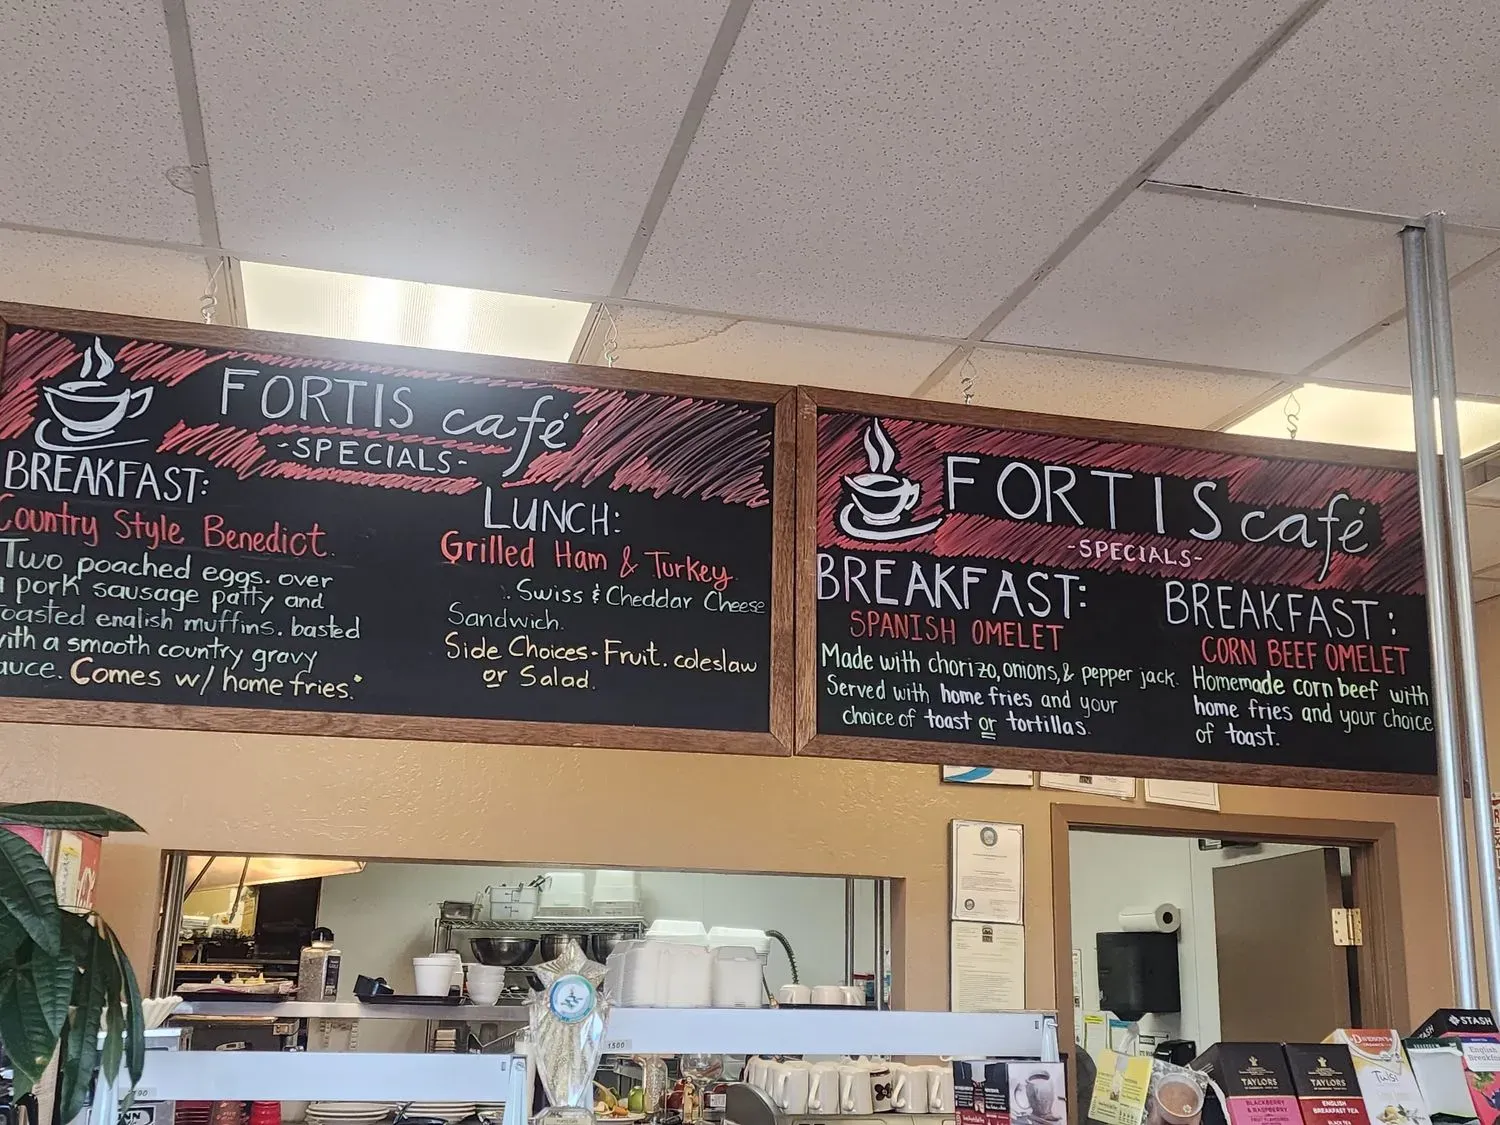 FORTIS café
-SPECIALS-
BREAKFAST:
Country Style Benedict.
Two poached eggs. over
a pork sausage patty and
toasted enalish muffins. basted
with a smooth country gravy
sauce. Comes w/ home fries.
LUNCH:
Grilled Ham & Turkey
Swiss & Cheddar Cheese
Sandwich.
Side Choices- Fruit. coleslaw
or Salad.
FORTIS café
-SPECIALS-
BREAKFAST:
SPANISH OMELET
Made with chorizo, onions, & pepper jack.
Served with home fries and your
choice of toast or tortillas.
BREAKFAST:
CORN BEEF OMELET
Homemade corn beef with
home fries and your choice
of toast.
1500
TAYLORS
BLACKBERRY
& RASPBERRY
TAYLORS
ENGLISH
BREAKFAST TEA
STASH
English